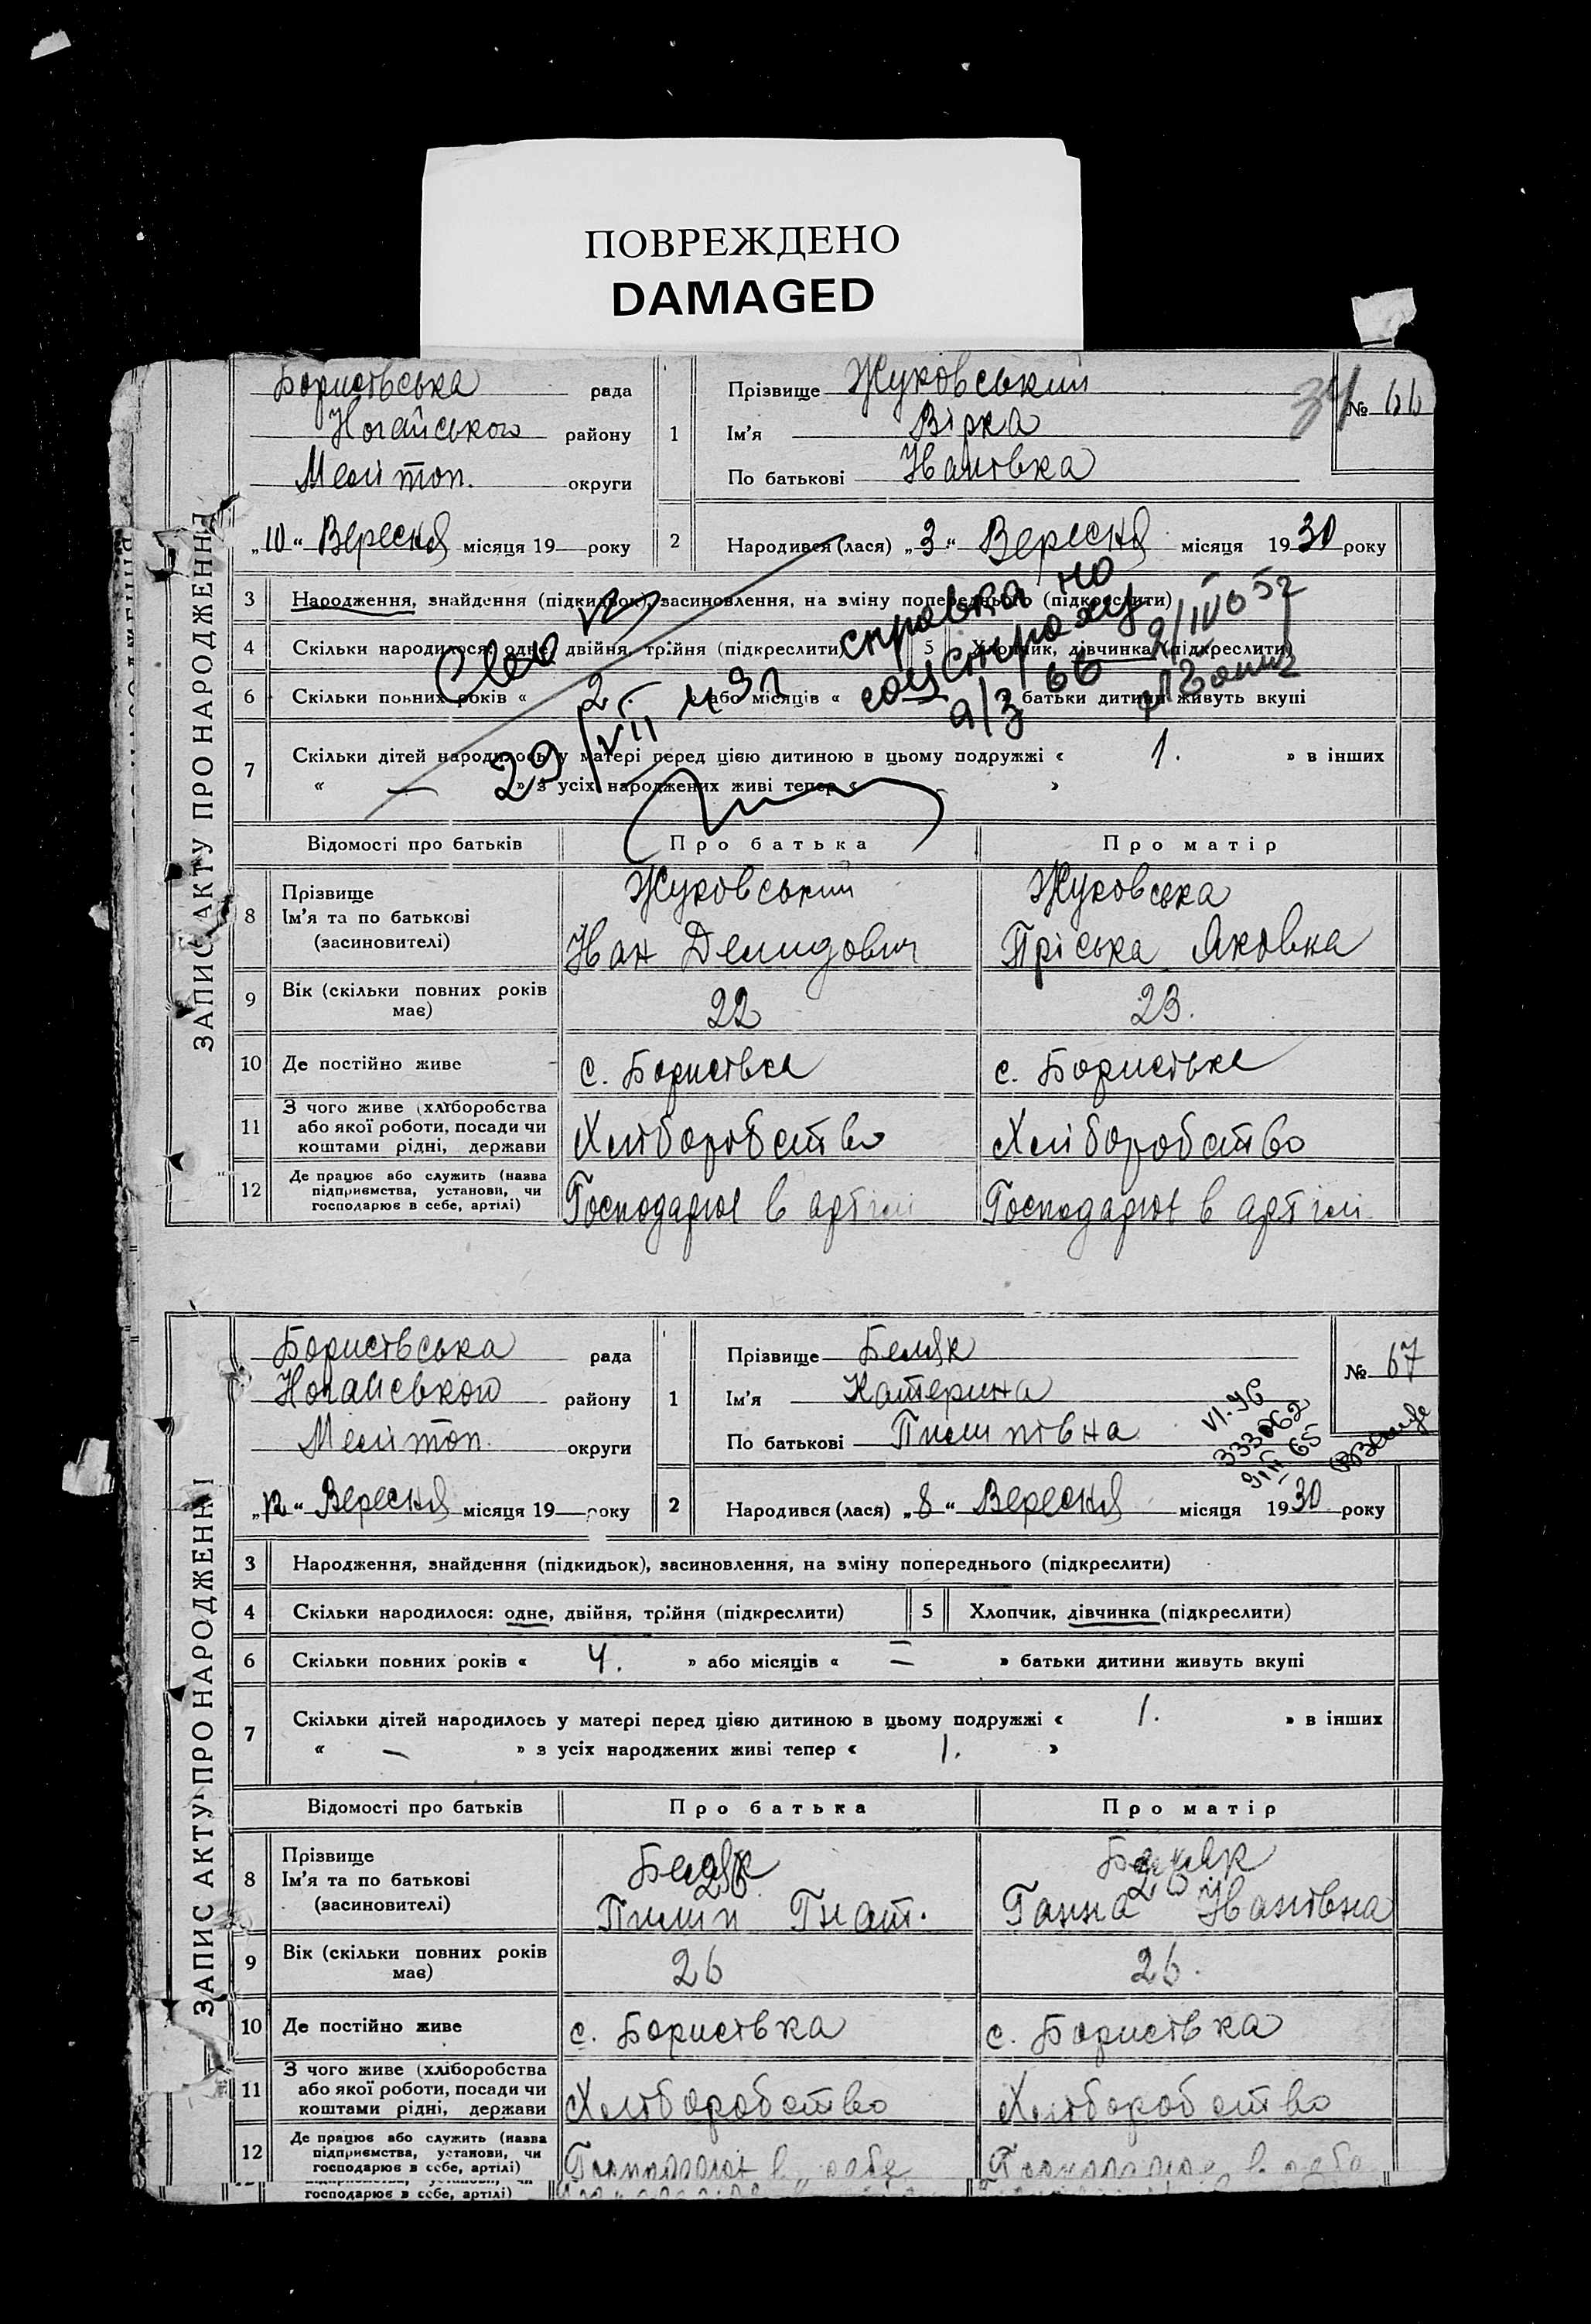 ПОВРЕЖДЕНО
DAMAGED
ЗАПИС АКТУ ПРО НАРОДЖЕННЯ
Борисівська рада
Ногайського району
Мелітоп. округи
„10“ Вересня місяця 19 — року
1
Прізвище Жуковський
Ім’я Вірка
По батькові Иванівка
34
№ 66
2
Народився (лася) „3“ Вересня місяця 1930 року
3 Народження, знайдення (підкидьок), засиновлення, на зміну попереднього (підкреслити)
4 Скільки народилося: одне, двійня, трійня (підкреслити)
5 Хлопчик, дівчинка (підкреслити)
6 Скільки повних років « 2. » або місяців « » батьки дитини живуть вкупі
7 Скільки дітей народилось у матері перед цією дитиною в цьому подружжі « 1. » в інших
« — » з усіх народжених живі тепер « — »
справка но
соцстраху
9/3 66
29/VII
Відомості про батьків
Про батька
Про матір
8 Прізвище
Ім’я та по батькові
(засиновителі)
Жуковський
Иван Демидович
Жуковська
Пріська Яковна
9 Вік (скільки повних років
має)
22
23.
10 Де постійно живе
с. Борисівка
с. Борисівка
11 З чого живе (хліборобства
або якої роботи, посади чи
коштами рідні, держави
Хліборобство
Хліборобство
12 Де працює або служить (назва
підприємства, установи, чи
господарює в себе, артілі)
Господарює в артілі
Господарює в артілі.
ЗАПИС АКТУ ПРО НАРОДЖЕННЯ
Борисівська рада
Ногайського району
Мелітоп. округи
„12“ Вересня місяця 19 — року
1
Прізвище Беляк
Ім’я Катерина
По батькові Пилипівна
№ 67
VI-ЯС
333062
9/II 65
2
Народився (лася) „8“ Вересня місяця 1930 року
3 Народження, знайдення (підкидьок), засиновлення, на зміну попереднього (підкреслити)
4 Скільки народилося: одне, двійня, трійня (підкреслити)
5 Хлопчик, дівчинка (підкреслити)
6 Скільки повних років « 4. » або місяців « — » батьки дитини живуть вкупі
7 Скільки дітей народилось у матері перед цією дитиною в цьому подружжі « 1. » в інших
« — » з усіх народжених живі тепер « 1. »
Відомості про батьків
Про батька
Про матір
8 Прізвище
Ім’я та по батькові
(засиновителі)
Беляк
26.
Пилип Гнат.
Беляк
26
Ганна Иванівна
9 Вік (скільки повних років
має)
26
26.
10 Де постійно живе
с. Борисівка
с. Борисівка
11 З чого живе (хліборобства
або якої роботи, посади чи
коштами рідні, держави
Хліборобство
Хліборобство
12 Де працює або служить (назва
підприємства, установи, чи
господарює в себе, артілі)
Господарює в себе
Господарює в себе
господарює в себе, артілі)